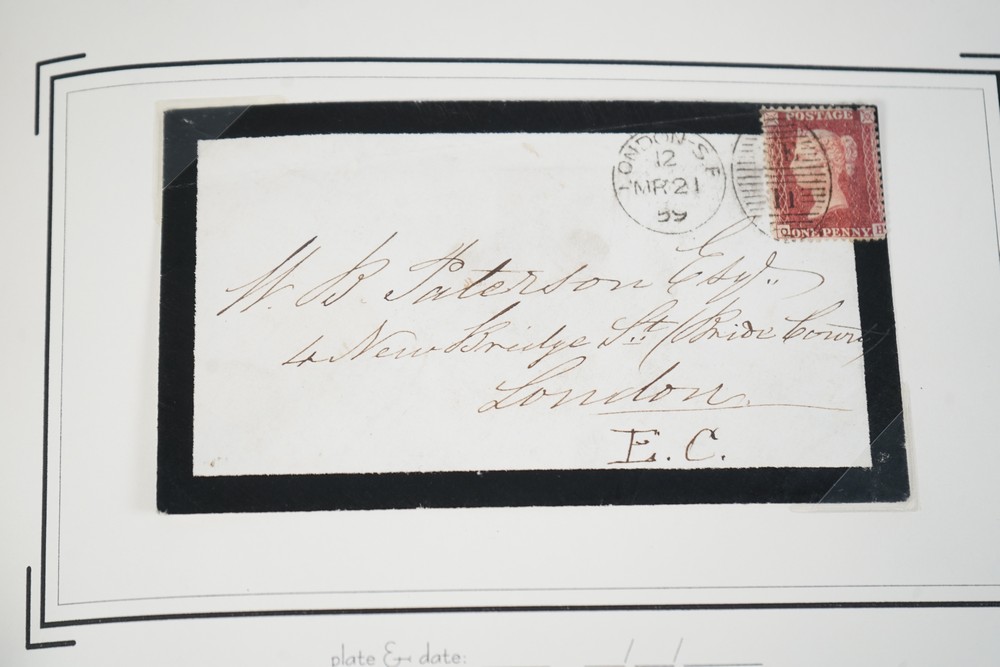 LONDON-S.E
12
MR 21
59
11
POSTAGE
ONE PENNY
H
W. B. Paterson Esqr.
4 New Bridge St. (Bride Court)
London
E. C.
plate & date: / /